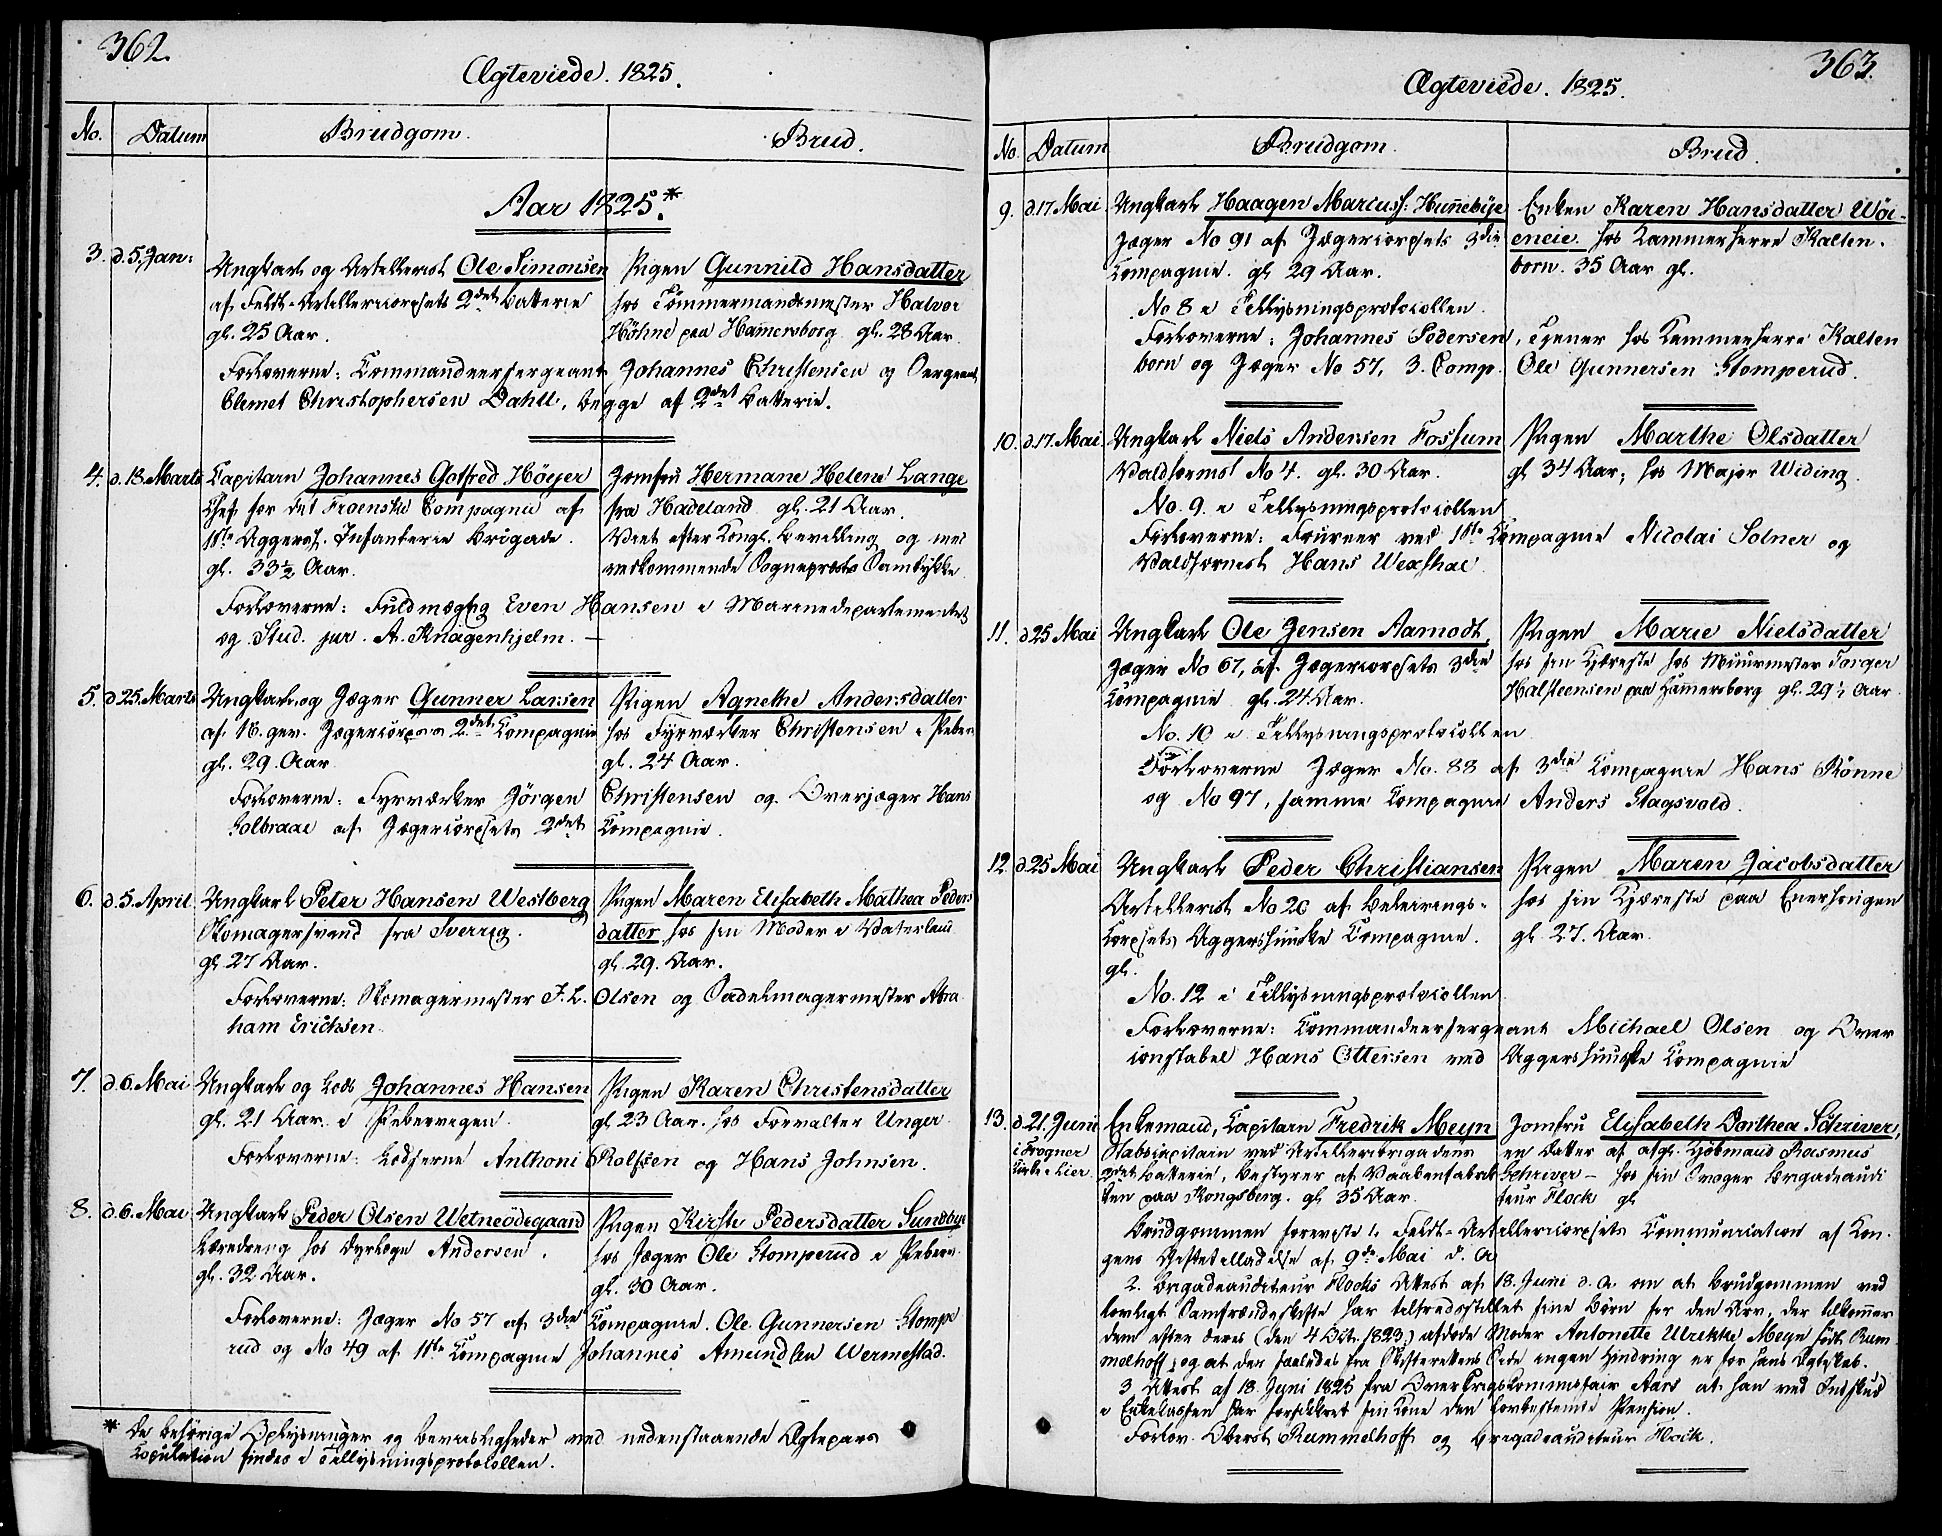 362.
Ægteviede. 1825.
No. Datum Brudgom. Brud.
Aar 1825.*
3. d. 5. Jan: Ungkarl og Artillerist Ole Simonsen
af Feldt-Artilleriecorpsets 2det Batterie
gl. 25 Aar.
Pigen Gunnild Hansdatter
hos Tömmermandsmester Halvor
Höhne paa Hamersborg gl. 28 Aar.
Forloverne: Commandeersergeant Johannes Christensen og Sergeant
Clemet Christophersen Dahll, begge af 2det Batterie.
4. d. 18. Marts Capitain Johannes Gotfred Höyer
Chef for det Froenske Compagnie af
1ste Aggersh. Infanterie Brigade.
gl. 33½ Aar.
Jomfru Hermane Helene Lange
fra Hadeland gl. 21 Aar.
Viet efter Kongl. Bevilling og med
vedkommende Sognepræsts Samtykke.
Forloverne: Fuldmægtig Even Hansen i Marinedepartementet
og Stud. jur. A. Knagenhjelm. —
5. d. 25. Marts Ungkarl og Jæger Gunner Larsen
af N. gev. Jægercorpses 2det Compagnie
gl. 29. Aar
Pigen Agnethe Andersdatter
hos Fyrværker Christensen i Peber
gl. 24 Aar.
Forloverne: Fyrværker Jörgen Christensen og Overjæger Hans
Solbraae af Jægercorpsets 2det Compagnie.
6. d. 5. April Ungkarl Peter Hansen Westberg
Skomagersvend fra Sverrig.
gl. 27 Aar.
Pigen Maren Elisabeth Mathea Peders
datter hos sin Moder i Vaterland
gl. 29. Aar.
Forloverne: Skomagermester J. L. Olsen og Sadelmagermester Abra
ham Erichsen
7. d. 6. Mai Ungkarl og Lods Johannes Hansen
gl. 21 Aar i Pebervigen.
Pigen Karen Christensdatter
gl. 23 Aar. hos Forvalter Unger
Forloverne: Lodserne Anthoni Rolfsen og Hans Johnsen.
8. d. 6. Mai Ungkarl Peder Olsen Wetneödegaard
Læredreng hos Dyrlæge Andersen.
gl. 32 Aar.
Pigen Kirsti Pedersdatter Sundbye
hos Jæger Ole Stomperud i Peberv.
gl. 30 Aar.
Forloverne: Jæger No 57 af 3die Compagnie. Ole Gunnersen Stompe
rud og No 49 af 1ste Compagnie Johannes Amundsen Wermestad.
* De behörige Oplysninger og Beviisligheder ved nedenstaaende Ægtepars
Copulation findes i Tillysningsprotokollen.
363.
Ægteviede. 1825.
No. Datum Brudgom. Brud.
9. d. 17 Mai Ungkarl Haagen Mariusf: Hunnebye
Jæger No 91 af Jægercorpsets 3die
Compagnie. gl. 29 Aar.
Enken Karen Hansdatter Wöi-
eneie. hos Kammerherre Kalten-
born. 35 Aar gl.
No 8 i Tillysningsprotocollen.
Forloverne: Johannes Pedersen, Tjener hos Kammerherre Kalten
born og Jæger No 57, 3. Comp. Ole Gunnersen Stomperud.
10. d. 17. Mai Ungkarl Niels Andersen Fossum
Valdhornist No 4. gl. 30 Aar.
Pigen Marthe Olsdatter
gl 34 Aar; hos Major Widing.
No. 9. i Tillysningsprotocollen
Forloverne: Fourier ved 1ste Compagnie Nicolai Solner og
Valdhornist Hans Wexthal
11. d. 25 Mai Ungkarl Ole Jensen Aamodt,
Jæger No 67, af Jægercorpsets 3die
Compagnie gl. 24 Aar.
Pigen Marie Nielsdatter
hos sin Kjæreste hos Muurmester Torger
Halsteensen paa Hamersborg gl. 29½ Aar
No. 10 i Tillysningsprotocollen
Forloverne Jæger No. 88 af 3die Compagnie Hans Rönne
og No 97, samme Compagnie Anders Stagsvold.
12. d. 25 Mai Ungkarl Peder Christiansen
Artillerist No 20 af Beleirings-
Corpsets Aggershuuske Compagnie.
gl.
Pigen Maren Jacobsdatter
hos sin Kjæreste paa Enerhougen
gl. 27. Aar.
No. 12 i Tillysningsprotocollen
Forloverne: Commandeersergeant Michael Olsen og Over
constabel Hans Ottersen ved Aggershuuske Compagnie
13. d. 21. Juni
i Frogner
Kirke i Lier
Enkemand, Capitain Fredrik Meyn
Stabscapitain ved Artilleriebrigadens
2det Batterie, Bestyrer af Vaabenfabrik
ken paa Kongsberg. gl. 35 Aar.
Jomfru Elisabeth Dorthea Schriver,
en Datter af afgl. Kjöbmand Rasmus
Schriver – hos sin Svoger Brigadeaudi
teur Flock gl
Brudgommen foreviste 1. Feldt-Artilleriecorpsets Communication af Kon-
gens Giftetilladelse af 9de Mai d. A.
2. Brigadeauditeur Flocks Attest af 18. Juni d. A. om at Brudgommen ved
lovligt Samfrændeskifte har tilfredsstillet sine Börn for den Arv, der tilkommer
dem efter deres (den 4 Octr. 1823) afdöde Moder Antonette Ulrikke Meyn födt Rum
melhoff, og at der saaledes fra Skifterettens Side ingen Hindring er for hans Ægteskab.
3 Attest af 18. Juni 1825 fra OverKrigsCommissair Aars at han ved Indskud
i Enkekassen har forsikkret sin Kone den lovbestemte Pension.
Forlov. Oberst Rummelhoff og Brigadeauditeur Flock.